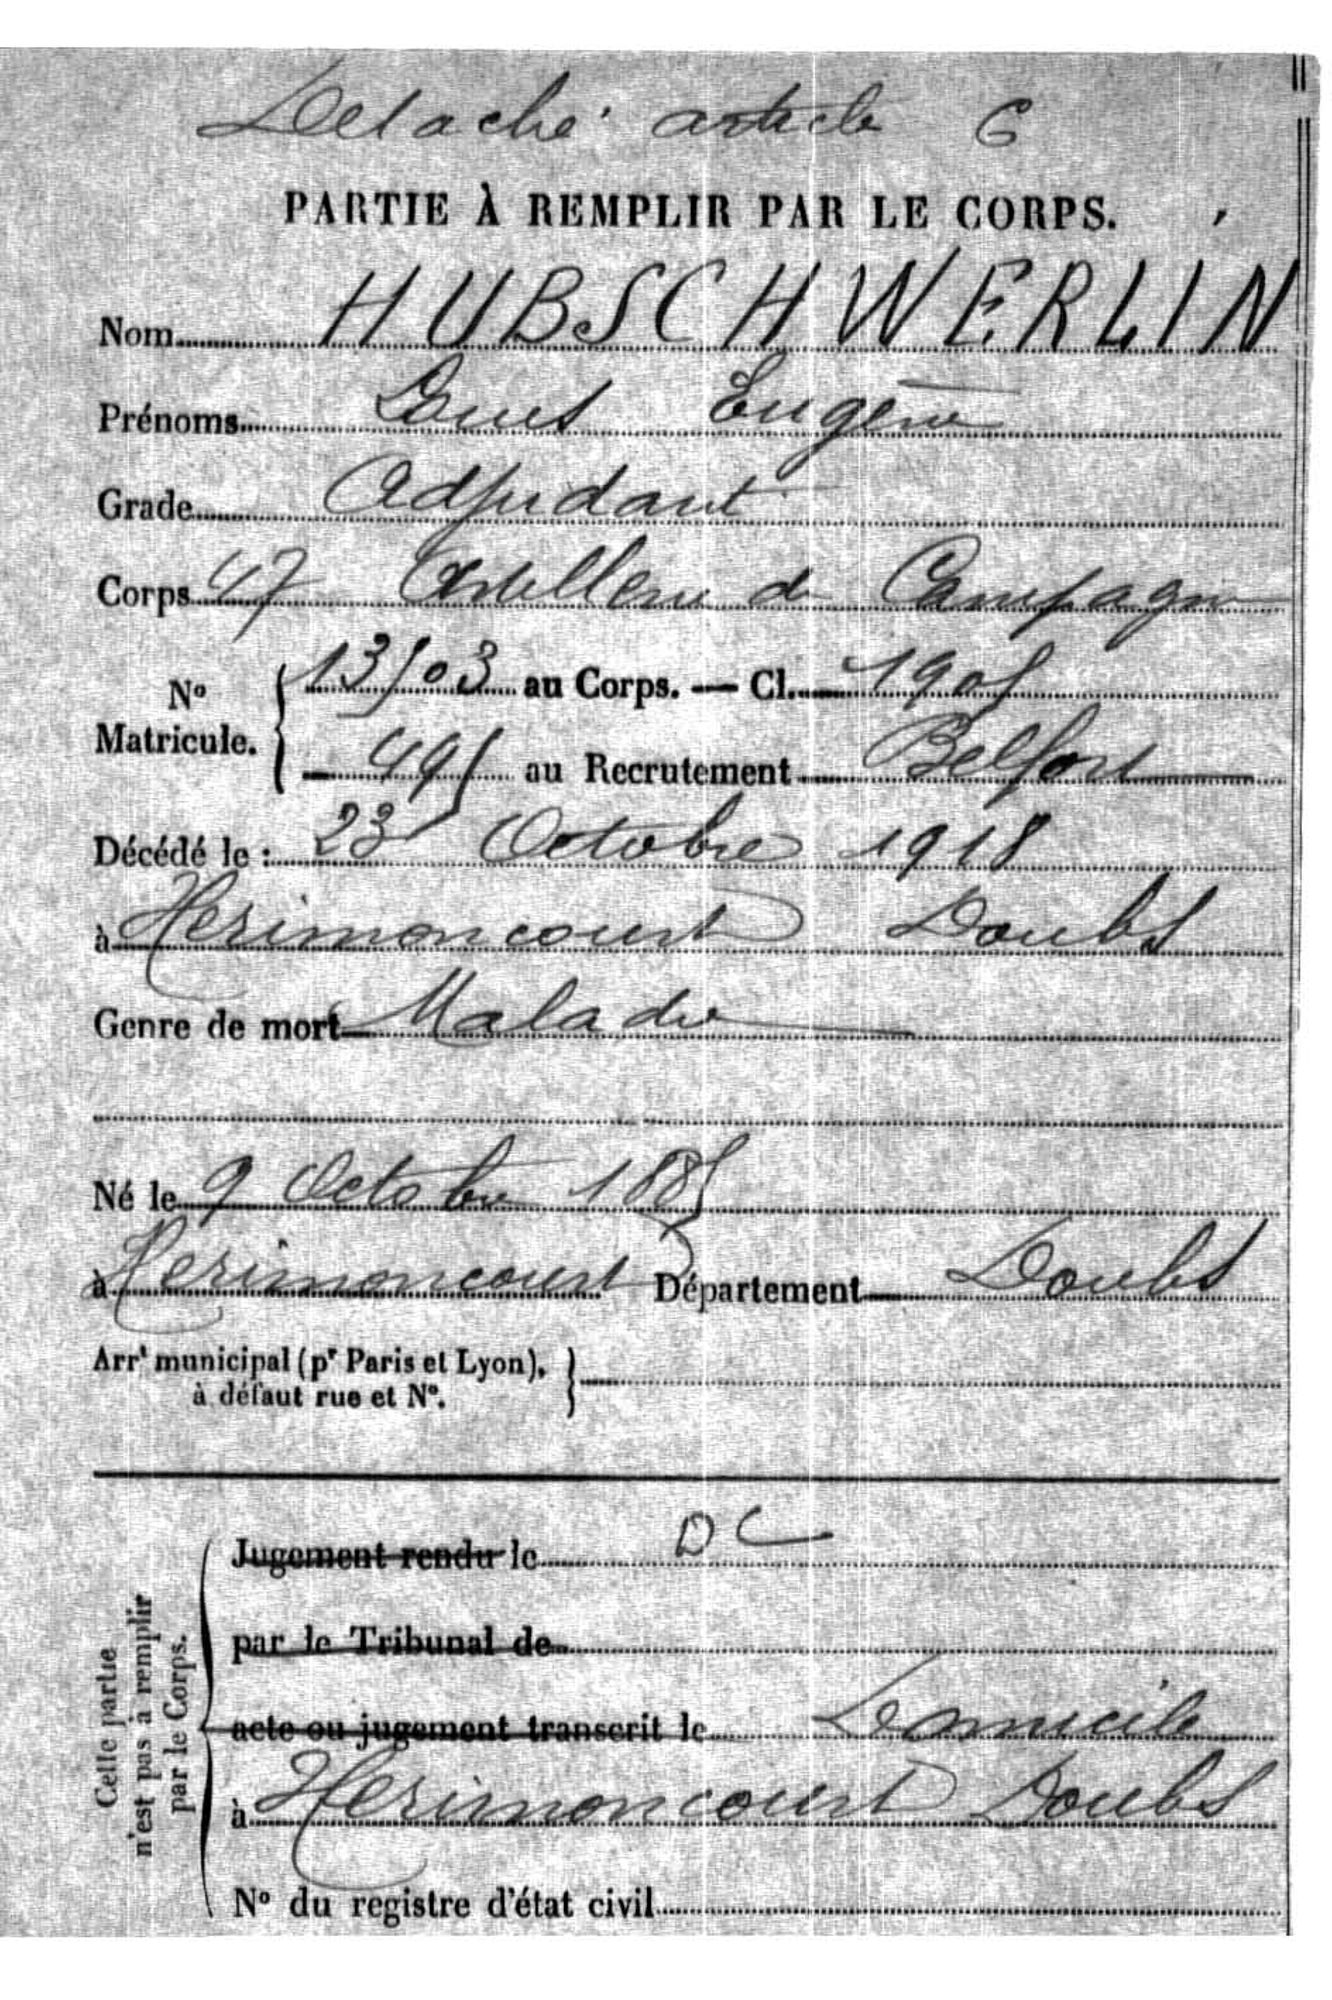 Détaché article 6
PARTIE À REMPLIR PAR LE CORPS.
Nom HUBSCHWERLIN
Prénoms Louis Eugène
Grade Adjudant
Corps 47 Artillerie de Campagne
N° Matricule. { 13503 au Corps. — Cl. 1905
495 au Recrutement Belfort
Décédé le : 23 Octobre 1918
à Hérimoncourt Doubs
Genre de mort Maladie
Né le 9 Octobre 1885
à Hérimoncourt Département Doubs
Arrt municipal (pr Paris et Lyon),
à défaut rue et N°.
Cette partie
n'est pas à remplir
par le Corps.
Jugement rendu le DC
par le Tribunal de
acte ou jugement transcrit le Domicile
à Hérimoncourt Doubs
N° du registre d'état civil